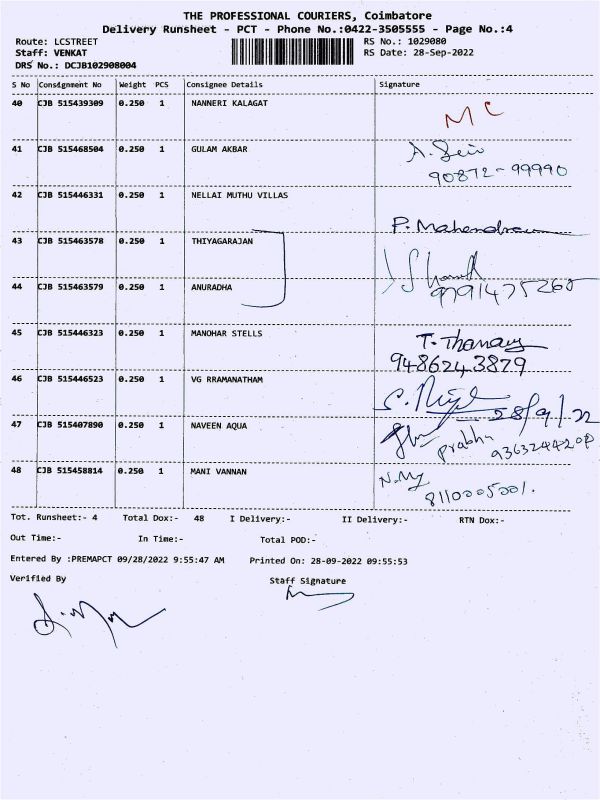 THE PROFESSIONAL COURIERS, Coimbatore
Delivery Runsheet - PCT - Phone No.:0422-3505555 - Page No.:4
Route: LCSTREET RS No.: 1029080
Staff: VENKAT RS Date: 28-Sep-2022
DRS No.: DCJB102908004
S No Consignment No Weight PCS Consignee Details Signature
40 CJB 515439309 0.250 1 NANNERI KALAGAT
MC
41 CJB 515468504 0.250 1 GULAM AKBAR
90872-99990
42 CJB 515446331 0.250 1 NELLAI MUTHU VILLAS
P. Mahendran
43 CJB 515463578 0.250 1 THIYAGARAJAN
44 CJB 515463579 0.250 1 ANURADHA
9791475265
45 CJB 515446323 0.250 1 MANOHAR STELLS T. Thanam
9486243879
46 CJB 515446523 0.250 1 VG RRAMANATHAM
28/9/22
47 CJB 515407890 0.250 1 NAVEEN AQUA
prabhu 9363244200
48 CJB 515458814 0.250 1 MANI VANNAN
8110005001.
Tot. Runsheet:- 4 Total Dox:- 48 I Delivery:- II Delivery:- RTN Dox:-
Out Time:- In Time:- Total POD:-
Entered By :PREMAPCT 09/28/2022 9:55:47 AM Printed On: 28-09-2022 09:55:53
Verified By Staff Signature